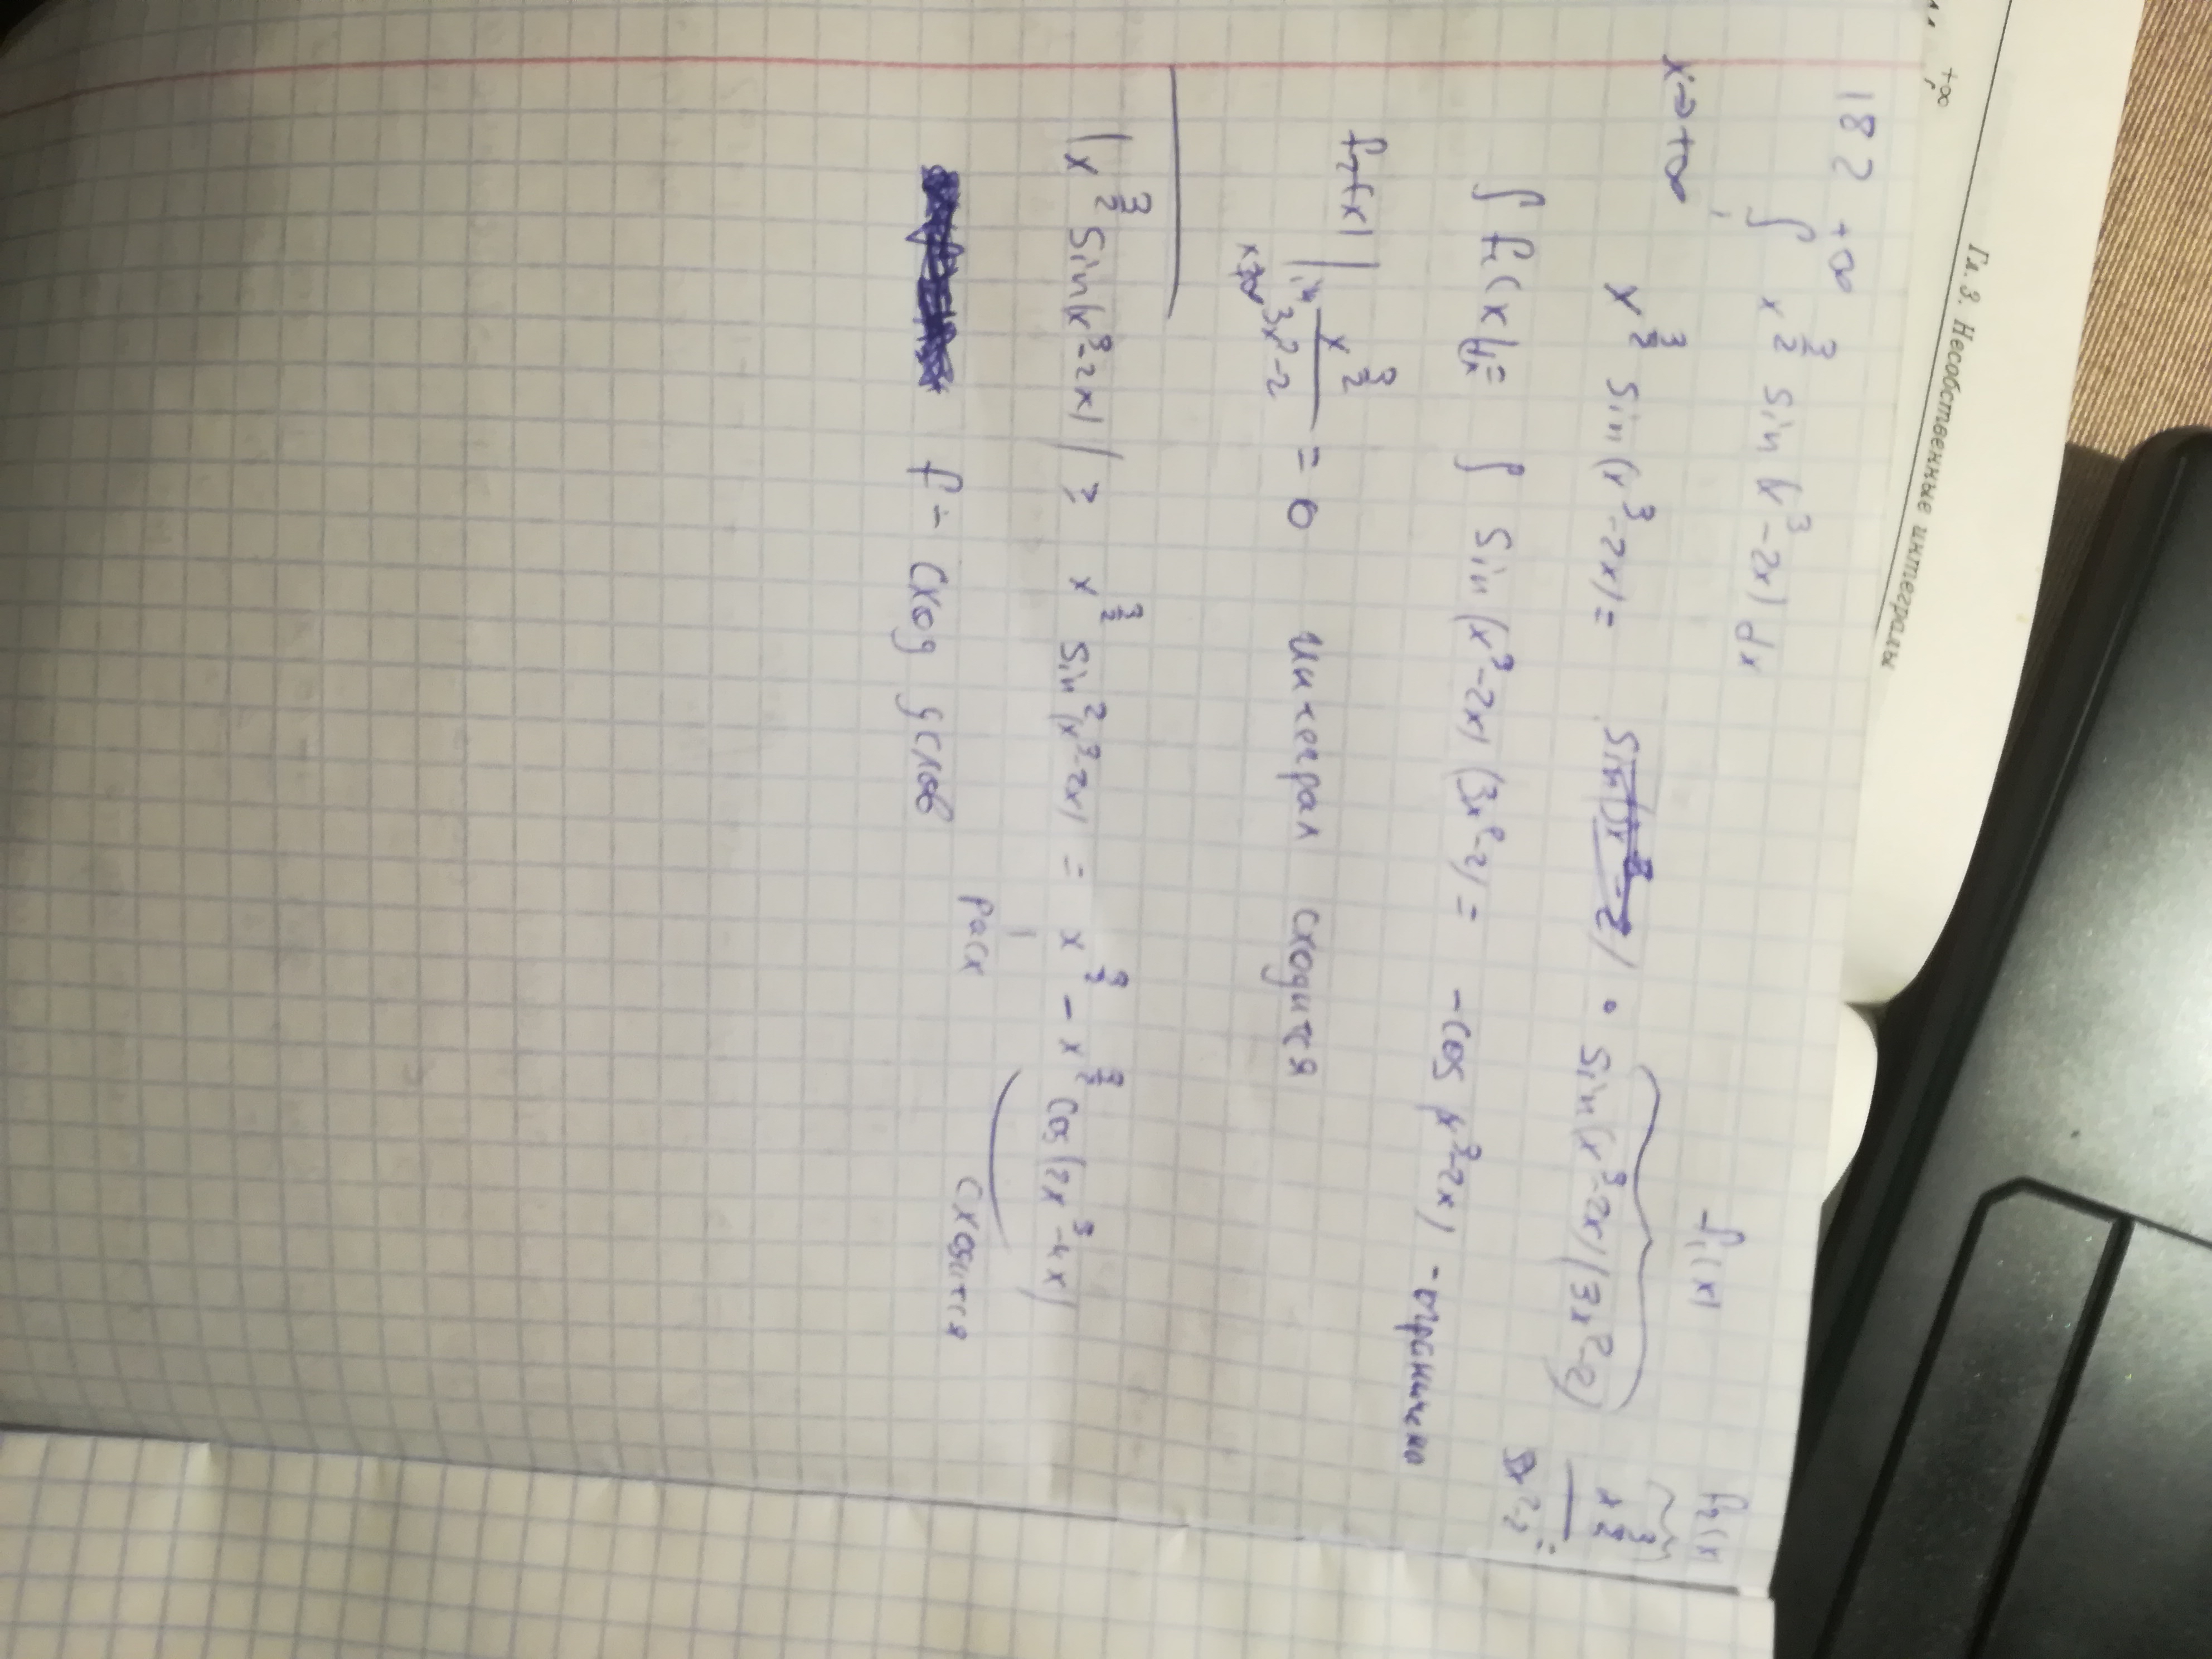 Гл. 3. Несобственные интегралы
+∞
∫
182
∫₁^{+∞} x^{3/2} sin(x³-2x) dx
x→+∞
f₁(x) f₂(x)
x^{3/2} sin(x³-2x) = · sin(x³-2x)(3x²-2) x^{3/2}/(3x²-2) =
∫ f₁(x)dx = ∫ sin(x³-2x)(3x²-2) = -cos(x³-2x) - ограничена
f₂(x) | lim x→∞ x^{3/2}/(3x²-2) = 0 интеграл сходится
|x^{3/2} sin(x³-2x)| ≥ x^{3/2} sin²(x³-2x) = x^{3/2} - x^{3/2} cos(2x³-4x)
расх сходится
f - сход услов